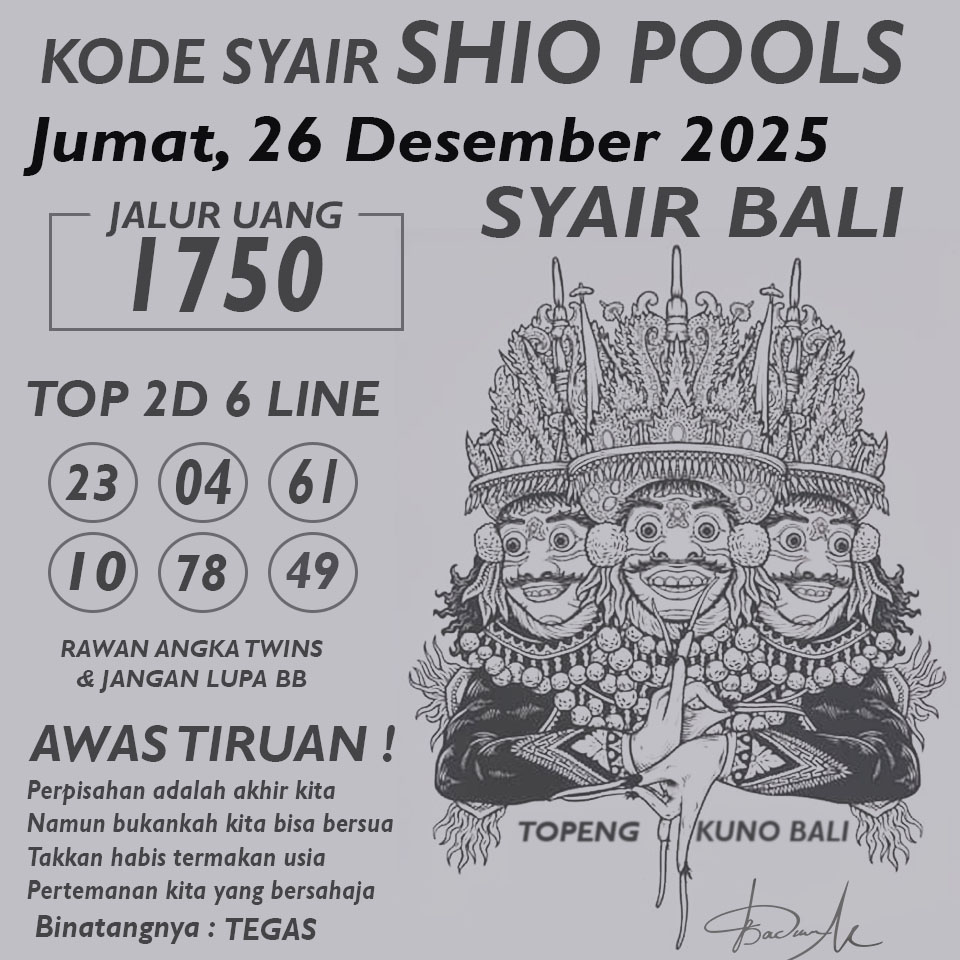 KODE SYAIR SHIO POOLS
Jumat, 26 Desember 2025
SYAIR BALI
JALUR UANG
1750
TOP 2D 6 LINE
23 04 61
10 78 49
RAWAN ANGKA TWINS
& JANGAN LUPA BB
AWAS TIRUAN !
Perpisahan adalah akhir kita
Namun bukankah kita bisa bersua
Takkan habis termakan usia
Pertemanan kita yang bersahaja
Binatangnya : TEGAS
TOPENG KUNO BALI